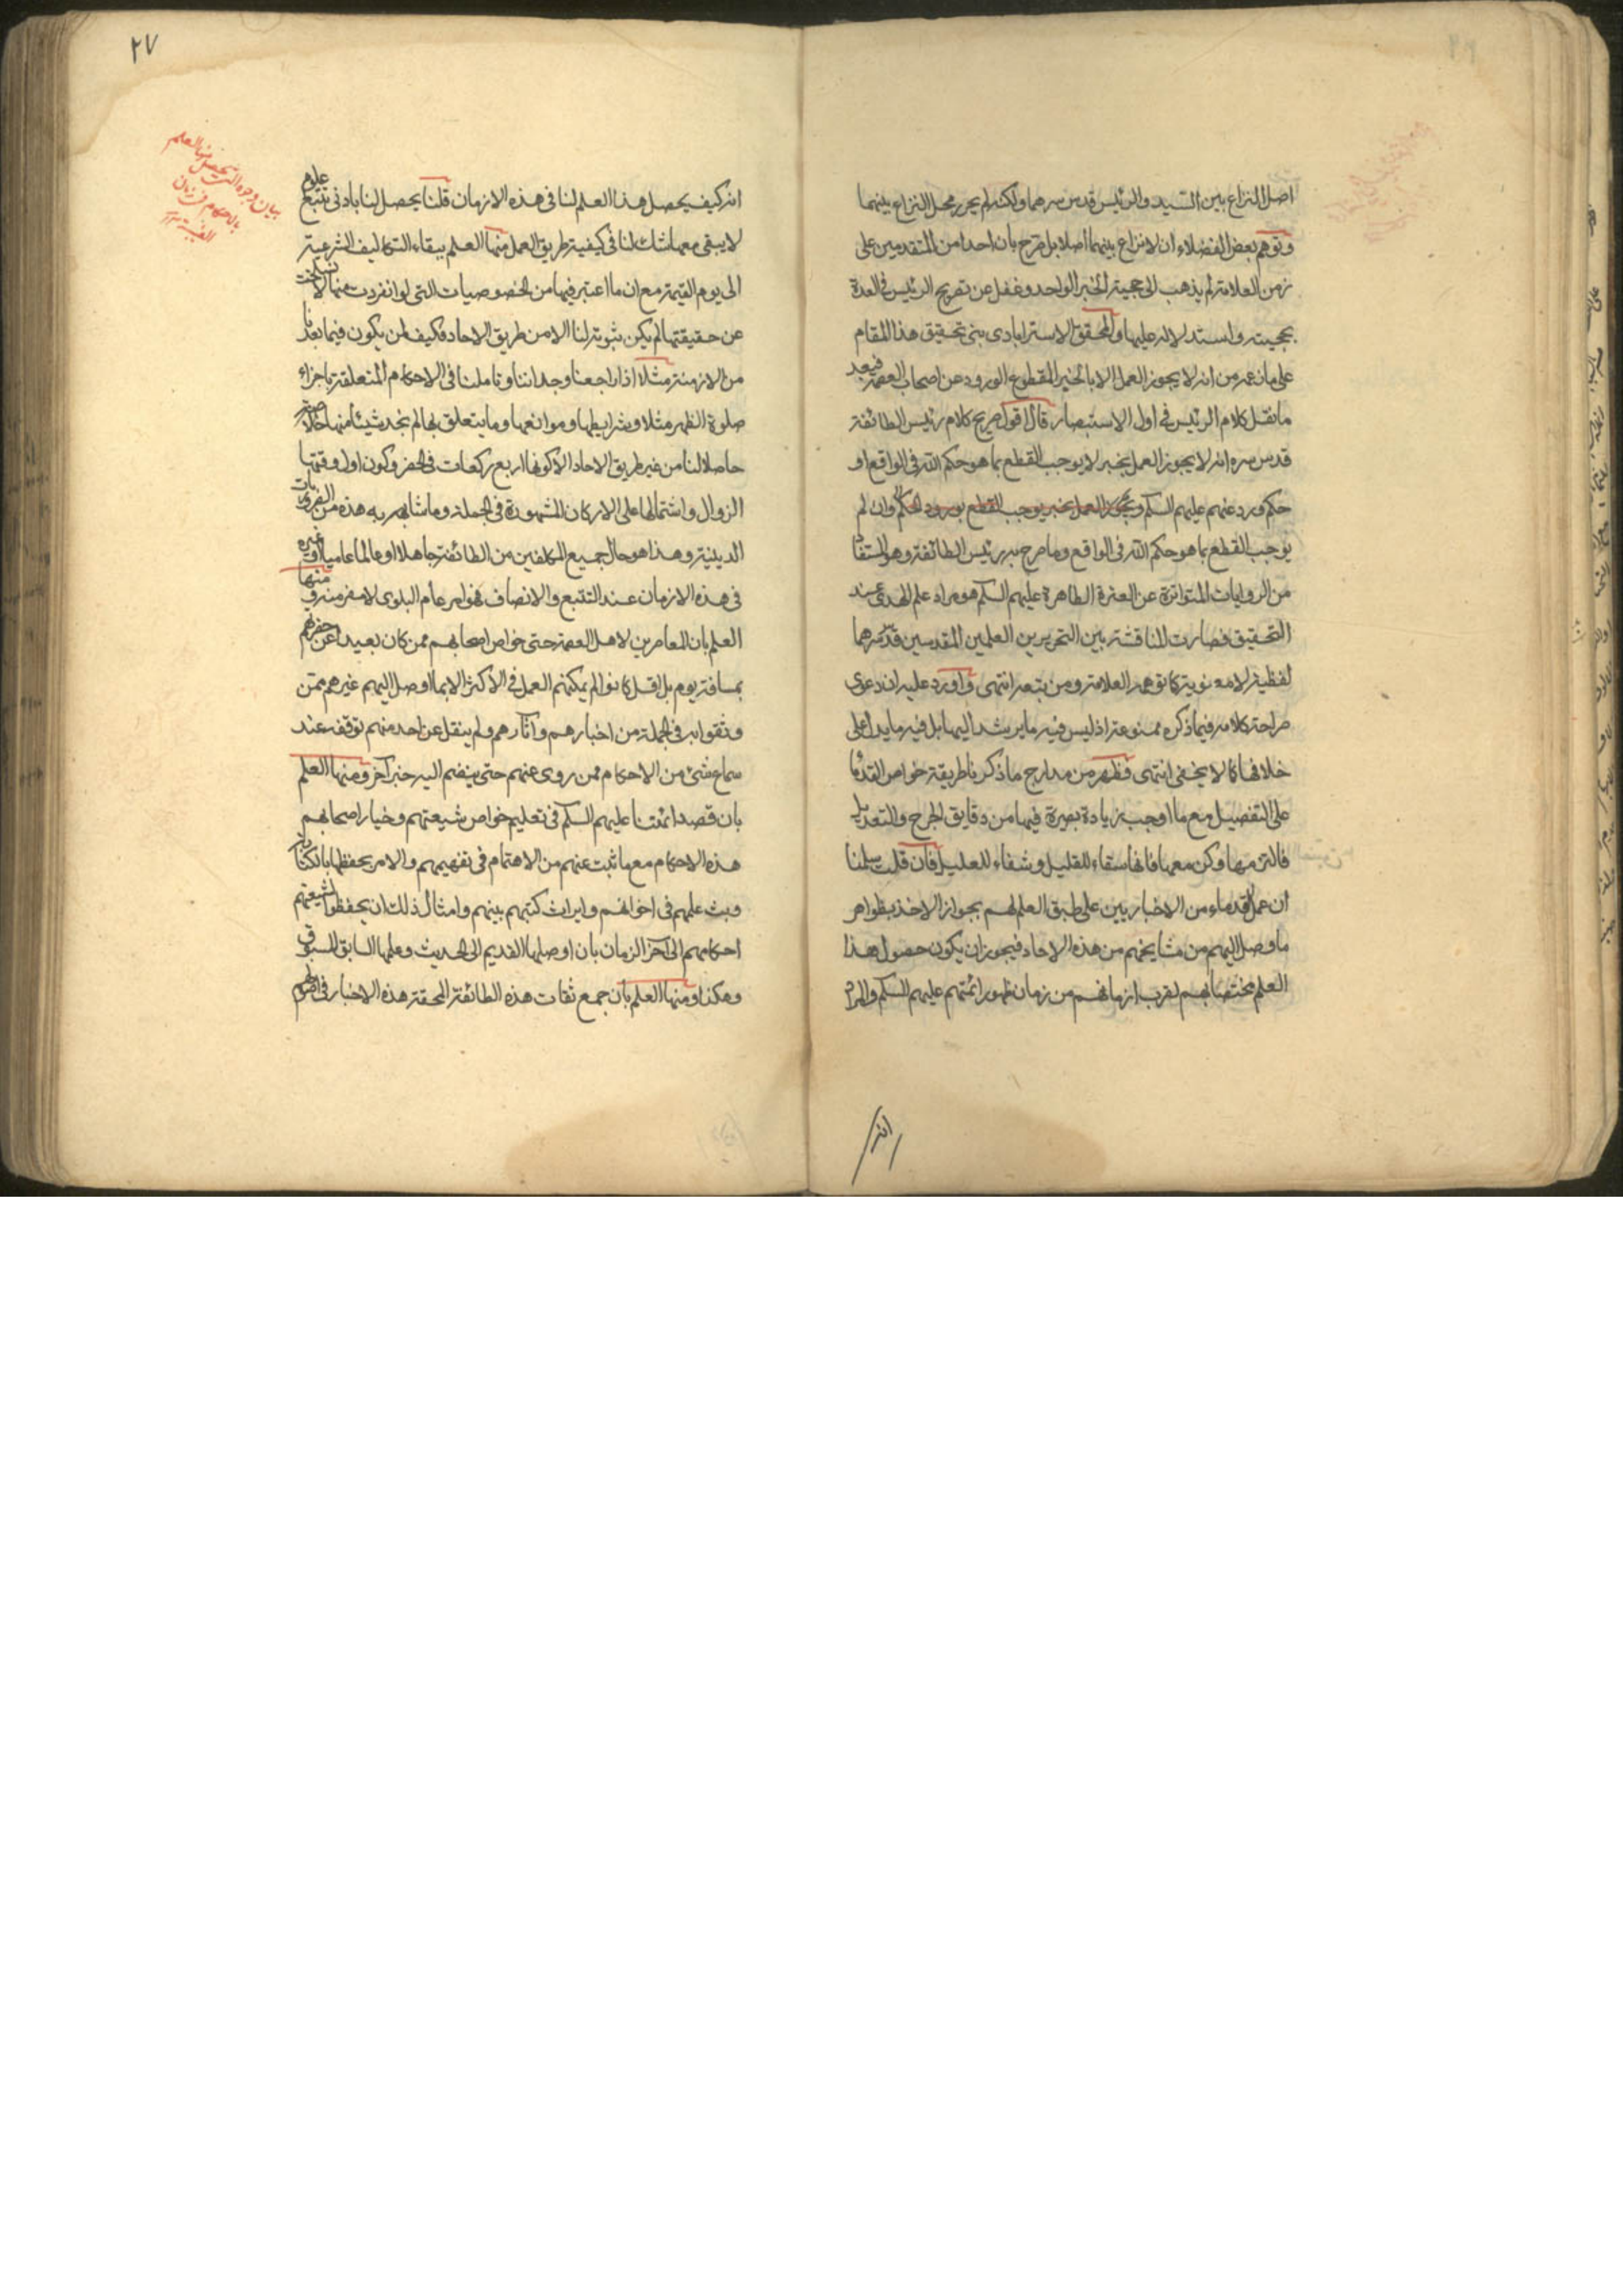 اصل النزاع بين السيد والرئيس قدس سرهما ولكنه لم يحرر محل النزاع بينهما
وتوهم بعض الفضلاء ان لا نزاع بينهما اصلا بل صرح بان احدا من المتقدمين على
زمن العلامة لم يذهب الى حجية الخبر الواحد وغفل عن تصريح الرئيس في العدة
بحجيته واستدلاله عليها والمحقق الاسترابادى بنى تحقيق هذا المقام
على ما زعمه من انه لا يجوز العمل الا بالخبر المقطوع الورود عن اصحاب العصمة فبعد
ما نقل كلام الرئيس في اول الاستبصار قال اقول صريح كلام رئيس الطائفة
قدس سره انه لا يجوز العمل بخبر لا يوجب القطع بما هو حكم الله في الواقع او
حكم ورد عنهم عليهم السلم ويجوز العمل بخبر يوجب القطع بورود الحكم وان لم
يوجب القطع بما هو حكم الله في الواقع وما صرح به رئيس الطائفة وهو المستفاد
من الروايات المتواترة عن العترة الطاهرة عليهم السلم هو مراد علم الهدى عند
التحقيق فصارت المناقشة بين النحريرين العلمين المقدسين قدس سرهما
لفظية لا معنوية كما توهمه العلامة ومن تبعه انتهى واورد عليه ان دعوى
صراحة كلامه فيما ذكره ممنوعة اذ ليس فيه ما يرشد اليها بل فيه ما يدل على
خلافها كما لا يخفى انتهى فظهر من مدارج ما ذكرنا طريقة خواص القدماء
على التفصيل مع ما اوجب زيادة بصيرة فيها من دقايق الجرح والتعديل
فالتزمها وكن معها فانها سقاء للغليل وشفاء للعليل فان قلت سلمنا
ان عمل القدماء من الاخباريين على طبق العلم لهم بجواز الاخذ بظواهر
ما وصل اليهم من مشايخهم من هذه الاحاد فيجوز ان يكون حصول هذا
العلم مختصا بهم لقرب ازمانهم من زمان ظهور ائمتهم عليهم السلم والمراد
انه
٢٧
بيان وجوه التى يحصل منها العلم
بالاحكام في زمان
الغيبة
انه كيف يحصل هذا العلم لنا في هذه الازمان قلنا يحصل لنا بادنى تتبع علوم
لا يبقى معها شك لنا في كيفية طريق العمل منها العلم ببقاء التكاليف الشرعية
الى يوم القيمة مع ان ما اعتبر فيها من الخصوصيات التى لو انفردت منها لانسلخت
عن حقيقتها لم يكن ثبوته لنا الا من طريق الاحاد فكيف لمن يكون فيما بعدنا
من الازمنة مثلا اذا راجعنا وجداننا وتاملنا في الاحكام المتعلقة باجزاء
صلوة الظهر مثلا وشرايطها وموانعها وما يتعلق بها لم نجد شيئا منها
حاصلا لنا من غير طريق الاحاد الا كونها اربع ركعات في الحضر وكون اول وقتها
الزوال واشتمالها على الاركان المشهورة في الجملة وما شابهه به هذه من الضروريات
الدينية وهذا هو حال جميع المكلفين من الطائفة جاهلا او عالما عاميا او غيره
في هذه الازمان عند التتبع والانصاف فهو امر عام البلوى لا مفر منه ومنها
العلم بان المعاصرين لاهل العصمة حتى خواص اصحابهم ممن كان بعيدا عن حضرتهم
بمسافة يوم بل اقل كانوا لم يمكنهم العمل في الاكثر الا بما اوصل اليهم غيرهم ممن
وثقوا به في الجملة من اخبارهم واثارهم ولم ينقل عن احد منهم توقف عند
سماع شئ من الاحكام ممن روى عنهم حتى ينضم اليه خبر آخر ومنها العلم
بان قصد ائمتنا عليهم السلم في تعليم خواص شيعتهم وخيار اصحابهم
هذه الاحكام مع ما ثبت عنهم من الاهتمام في تفهيمهم والامر بحفظها بالكتابة
وبث علمهم في اخوانهم وايراث كتبهم بينهم وامثال ذلك ان يحفظوا لشيعتهم
احكامهم الى آخر الزمان بان اوصلها القديم الى الحديث وعلمها السابق المسبوق
وهكذا ومنها العلم بان جمع ثقات هذه الطائفة المحقة هذه الاخبار في